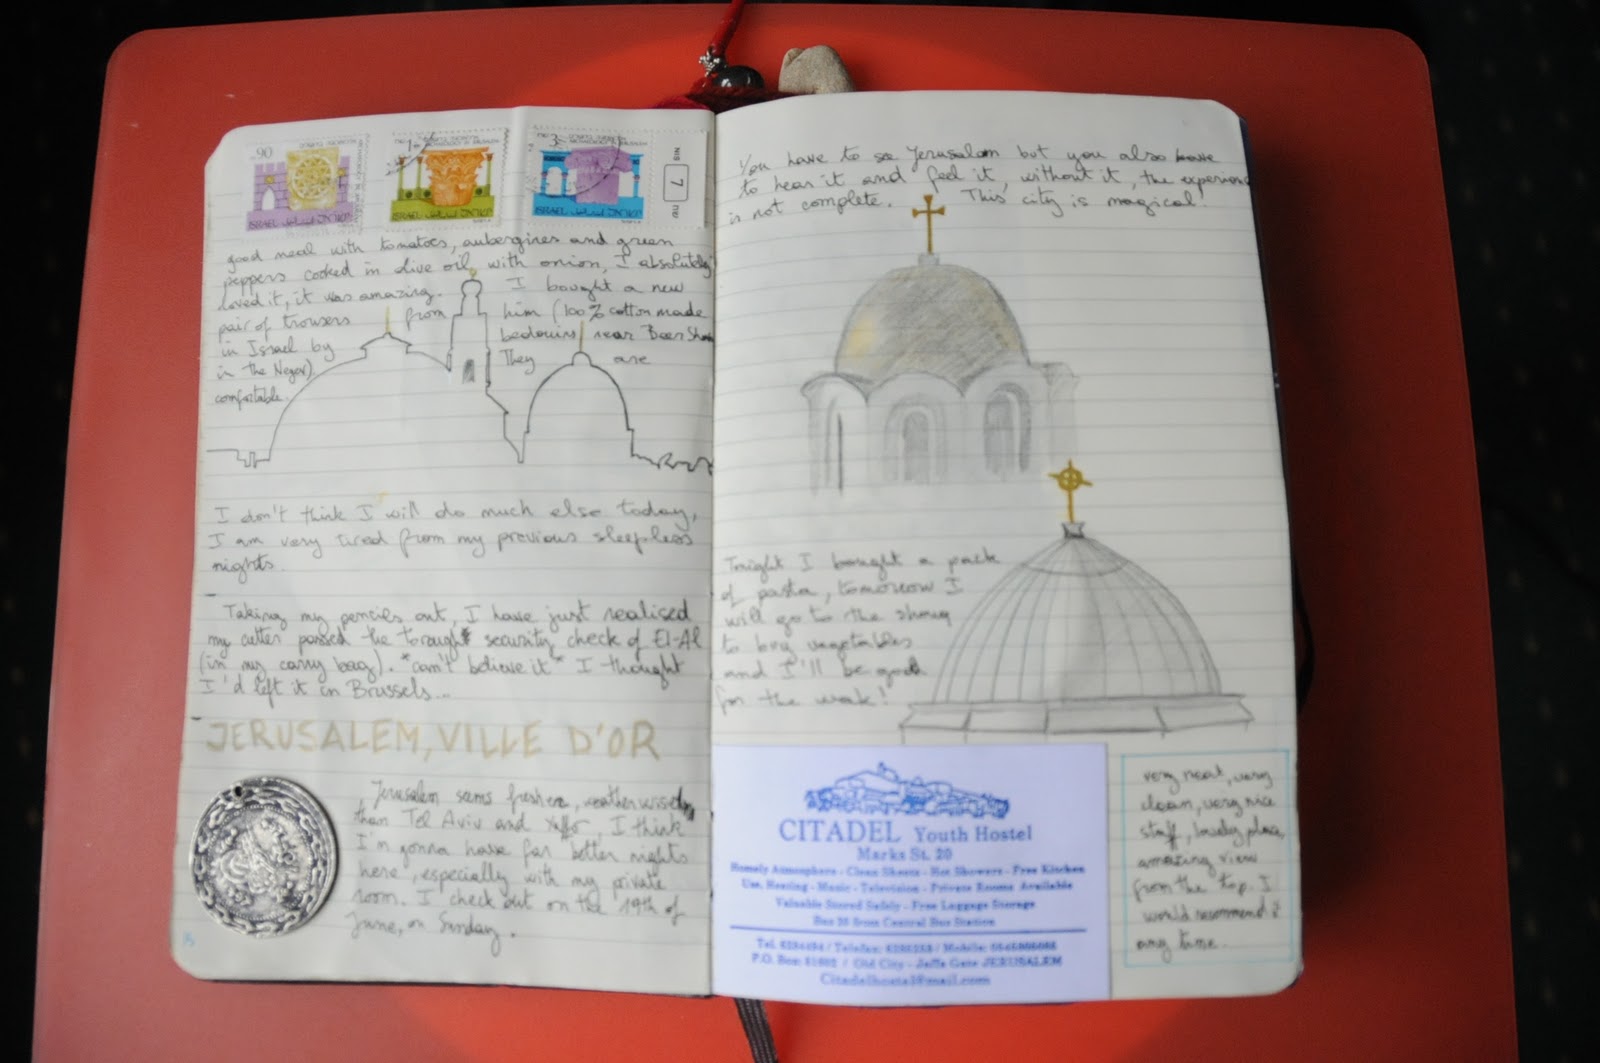 .90
ISRAEL
1
ISRAEL
3
ISRAEL
NIS 7
good meal with tomatoes, aubergines and green
peppers cooked in olive oil with onion, I absolutely
loved it, it was amazing. I bought a new
pair of trousers from him (100% cotton made
in Israel by bedouins near Beer
in the Negev). They are
comfortable.
I don't think I will do much else today,
I am very tired from my previous sleepless
nights.
Taking my pencils out, I have just realised
my cutter passed the security check of El-Al
(in my carry bag). *can't believe it* I thought
I'd left it in Brussels...
JERUSALEM, VILLE D'OR
Jerusalem seems fresher, weatherwise
than Tel Aviv and Yaffo, I think
I'm gonna have far better nights
here, especially with my private
room. I check out on the 19th of
June, on Sunday.
15
You have to see Jerusalem but you also have
to hear it and feel it, without it, the experience
is not complete. This city is magical!
Tonight I bought a pack
of pasta, tomorrow I
will go to the
to buy vegetables
and I'll be good
for the week!
CITADEL Youth Hostel
Marks St. 20
Homely Atmosphere - Clean Sheets - Hot Showers - Free Kitchen
Use, Heating - Music - Television - Private Rooms Available
Valuable Stored Safely - Free Luggage Storage
Bus 20 from Central Bus Station
Tel. / Telefax: / Mobile:
P.O. Box: / Old City - Jaffa Gate JERUSALEM
very neat, very
clean, very nice
staff, lovely place,
amazing view
from the top. I
would recommend it
any time.